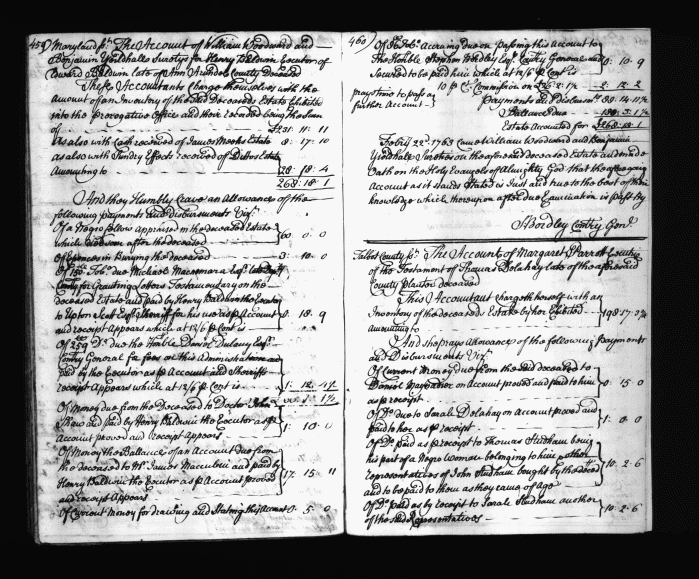 459) Maryland ss. The Account of William Woodward and
Benjamin Yieldhall Suretys for Henry Baldwin Executor of
Edward Baldwin late of Ann Arundel County Deceased
These Accountants Charge themselves with the
amount of an Inventory of the said Deceaseds Estate Exhibited
into the prerogative Office and there recorded being the Sum
of £231: 11: 11
As also with Cash received of James Meeks Estate 8: 17: 10
as also with Sundry Effects received of Dittos Estate
Amounting to 28: 18: 4
268: 18: 1
And they Humbly Crave an Allowance of the
following payments and disbursments Viz.
Of a Negro fellow appraised in the deceaseds Estate
which died soon after the deceased 60: 0: 0
Of Expences in Burying the deceased 3: 10: 0
Of Tobo. due Michael Macnemara Esqr. late Depty
Comry for Granting Letters Testamentary on the
deceaseds Estate and paid by Henry Baldwin the Executor
to Upton Scott Esqr. Sheriff for his use as P Account
and receipt Appears which at 12/6 P Cent is 0: 18: 9
Of 259 Do. due the Honble Daniel Dulany Esqr.
Comry General for fees on this Administration and
paid by the Executor as P Account and Sheriffs
receipt Appears which at 12/6 P Cent is 1: 12:
Of Money due from the Deceased to Doctor John
Shaw and paid by Henry Baldwin the Executor as P
Account proved and receipt Appears 1: 10: 0
Of Money the Ballance of an Account due from
the deceased to Mr. James Maccubin and paid by
Henry Baldwin the Executor as P Account proved
and receipt Appears 17: 15: 11
Of Current Money for drawing and Stating this Account 0: 5: 0
460)
Of Tobo. Accruing due on passing this Account to
the Honble Stephen Bordley Esqr. Comry General and
Secured to be paid him which at 12/6 P Cent is 0: 10: 9
10 P Ct. Commission on
pray time to pass a
further Account
Payments and disbursmts
Ballance due
Estate Accounted for £268: 18: 1
Febry 22d. 1763 Came William Woodward and Benjamin
Yieldhall Suretys on the aforesaid deceaseds Estate and made
Oath on the Holy Evangels of Allmighty God that the aforegoing
Account as it stands Stated is Just and true to the best of their
knowledge which thereupon after due Examination is past by
S Bordley Comry Genl.
Talbot County ss. The Account of Margaret Parrott Executrix
of the Testament of Thomas Delahay late of the aforesaid
County planter deceased
This Accountant chargeth herself with an
Inventory of the deceaseds Estate by her Exhibited
amounting to
And she prays allowance of the following payments
and Disbursments Viz.
Of Current Money due from the said deceased to
Daniel on Account proved and paid to him
as P receipt 0: 15: 0
Of Do. due to Sarah Delahay on Account proved and
paid to her as P receipt 1: 0: 0
Of Do. paid as P receipt to Thomas Studham being
his part of a Negro Woman belonging to him & other
representatives of John Studham bought by the deced
and to be paid to them as they came of Age 10: 2: 6
Of Do. paid as by receipt to Sarah Studham another
of the said Representatives 10: 2: 6